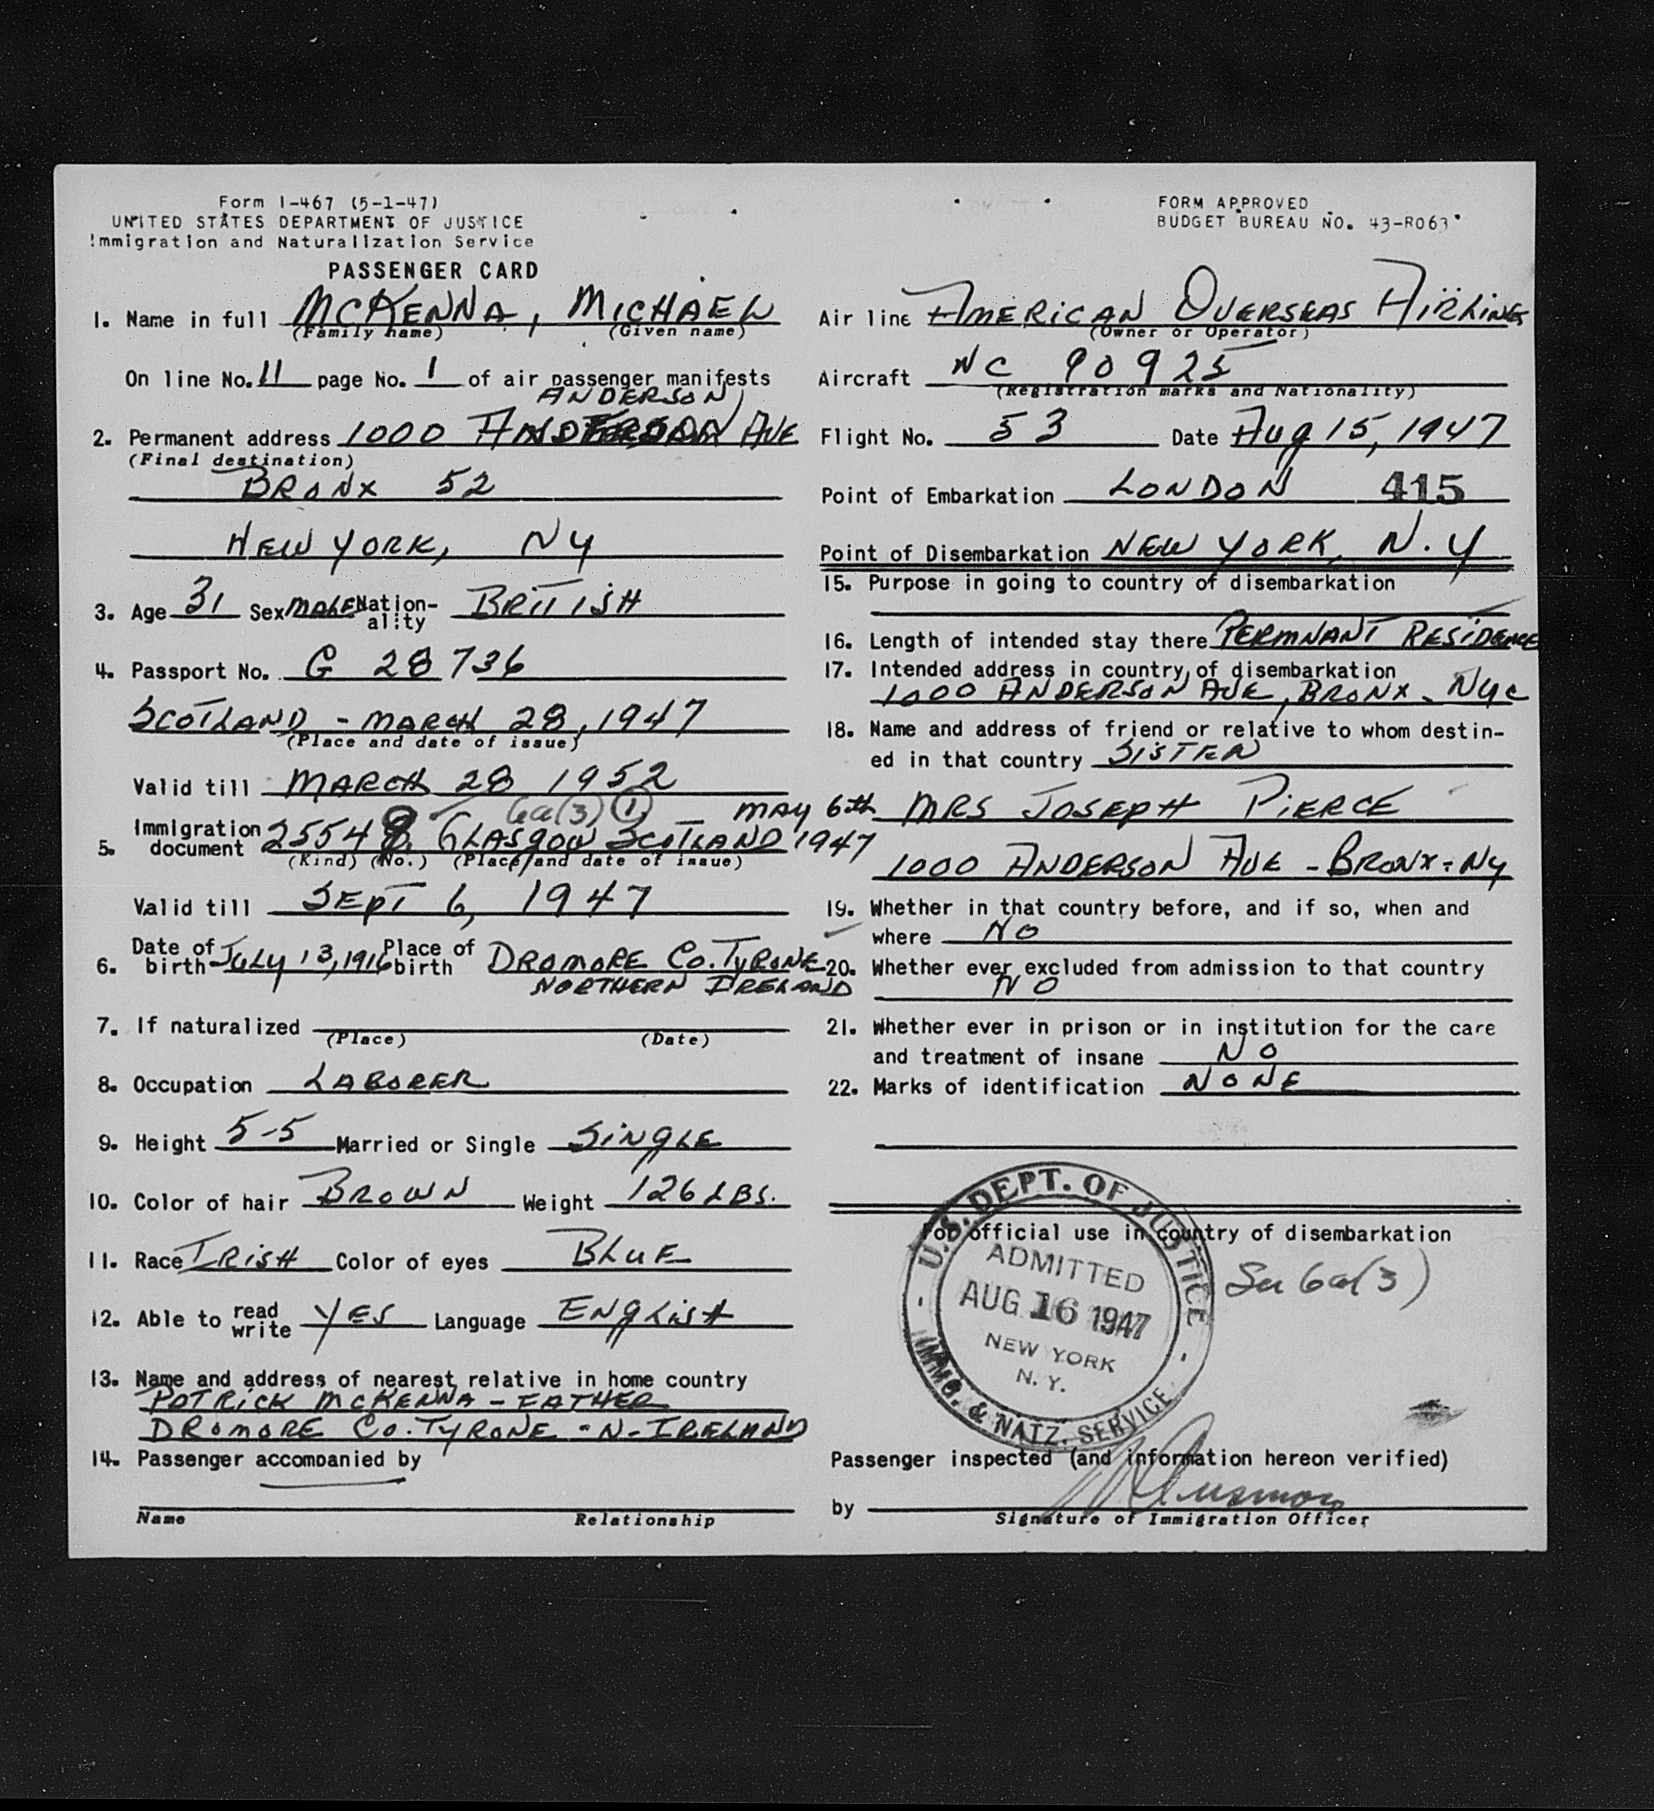 Form I-467 (5-1-47)
UNITED STATES DEPARTMENT OF JUSTICE
Immigration and Naturalization Service
PASSENGER CARD
FORM APPROVED
BUDGET BUREAU NO. 43-R063
1. Name in full McKENNA, MICHAEL
(Family name) (Given name)
On line No. 11 page No. 1 of air passenger manifests
ANDERSON
2. Permanent address 1000 ANDERSON AVE
(Final destination)
BRONX 52
NEW YORK, NY
3. Age 31 Sex MALE Nation-ality BRITISH
4. Passport No. G 28736
SCOTLAND - MARCH 28, 1947
(Place and date of issue)
Valid till MARCH 28 1952
6a(3) 1
5. Immigration document 25548 GLASGOW SCOTLAND - MAY 6th 1947
(Kind) (No.) (Place and date of issue)
Valid till SEPT 6, 1947
6. Date of birth JULY 13, 1916 Place of birth DROMORE CO. TYRONE
NORTHERN IRELAND
7. If naturalized
(Place) (Date)
8. Occupation LABORER
9. Height 5-5 Married or Single SINGLE
10. Color of hair BROWN Weight 126 LBS.
11. Race IRISH Color of eyes BLUE
12. Able to read write YES Language ENGLISH
13. Name and address of nearest relative in home country
PATRICK McKENNA - FATHER
DROMORE CO. TYRONE - N - IRELAND
14. Passenger accompanied by
Name Relationship
Air line AMERICAN OVERSEAS AIRLINES
(Owner or Operator)
Aircraft NC 90925
(Registration marks and Nationality)
Flight No. 53 Date Aug 15, 1947
Point of Embarkation LONDON 415
Point of Disembarkation NEW YORK, N.Y
15. Purpose in going to country of disembarkation
16. Length of intended stay there PERMNANT RESIDENCE
17. Intended address in country of disembarkation
1000 ANDERSON AVE, BRONX - NYC
18. Name and address of friend or relative to whom destin-
ed in that country SISTER
MRS JOSEPH PIERCE
1000 ANDERSON AVE - BRONX - NY
19. Whether in that country before, and if so, when and
where NO
20. Whether ever excluded from admission to that country
NO
21. Whether ever in prison or in institution for the care
and treatment of insane NO
22. Marks of identification NONE
For official use in country of disembarkation
U.S. DEPT. OF JUSTICE
ADMITTED
AUG 16 1947
NEW YORK
N.Y.
IMMG. & NATZ. SERVICE
6a(3)
Passenger inspected (and information hereon verified)
by
Signature of Immigration Officer